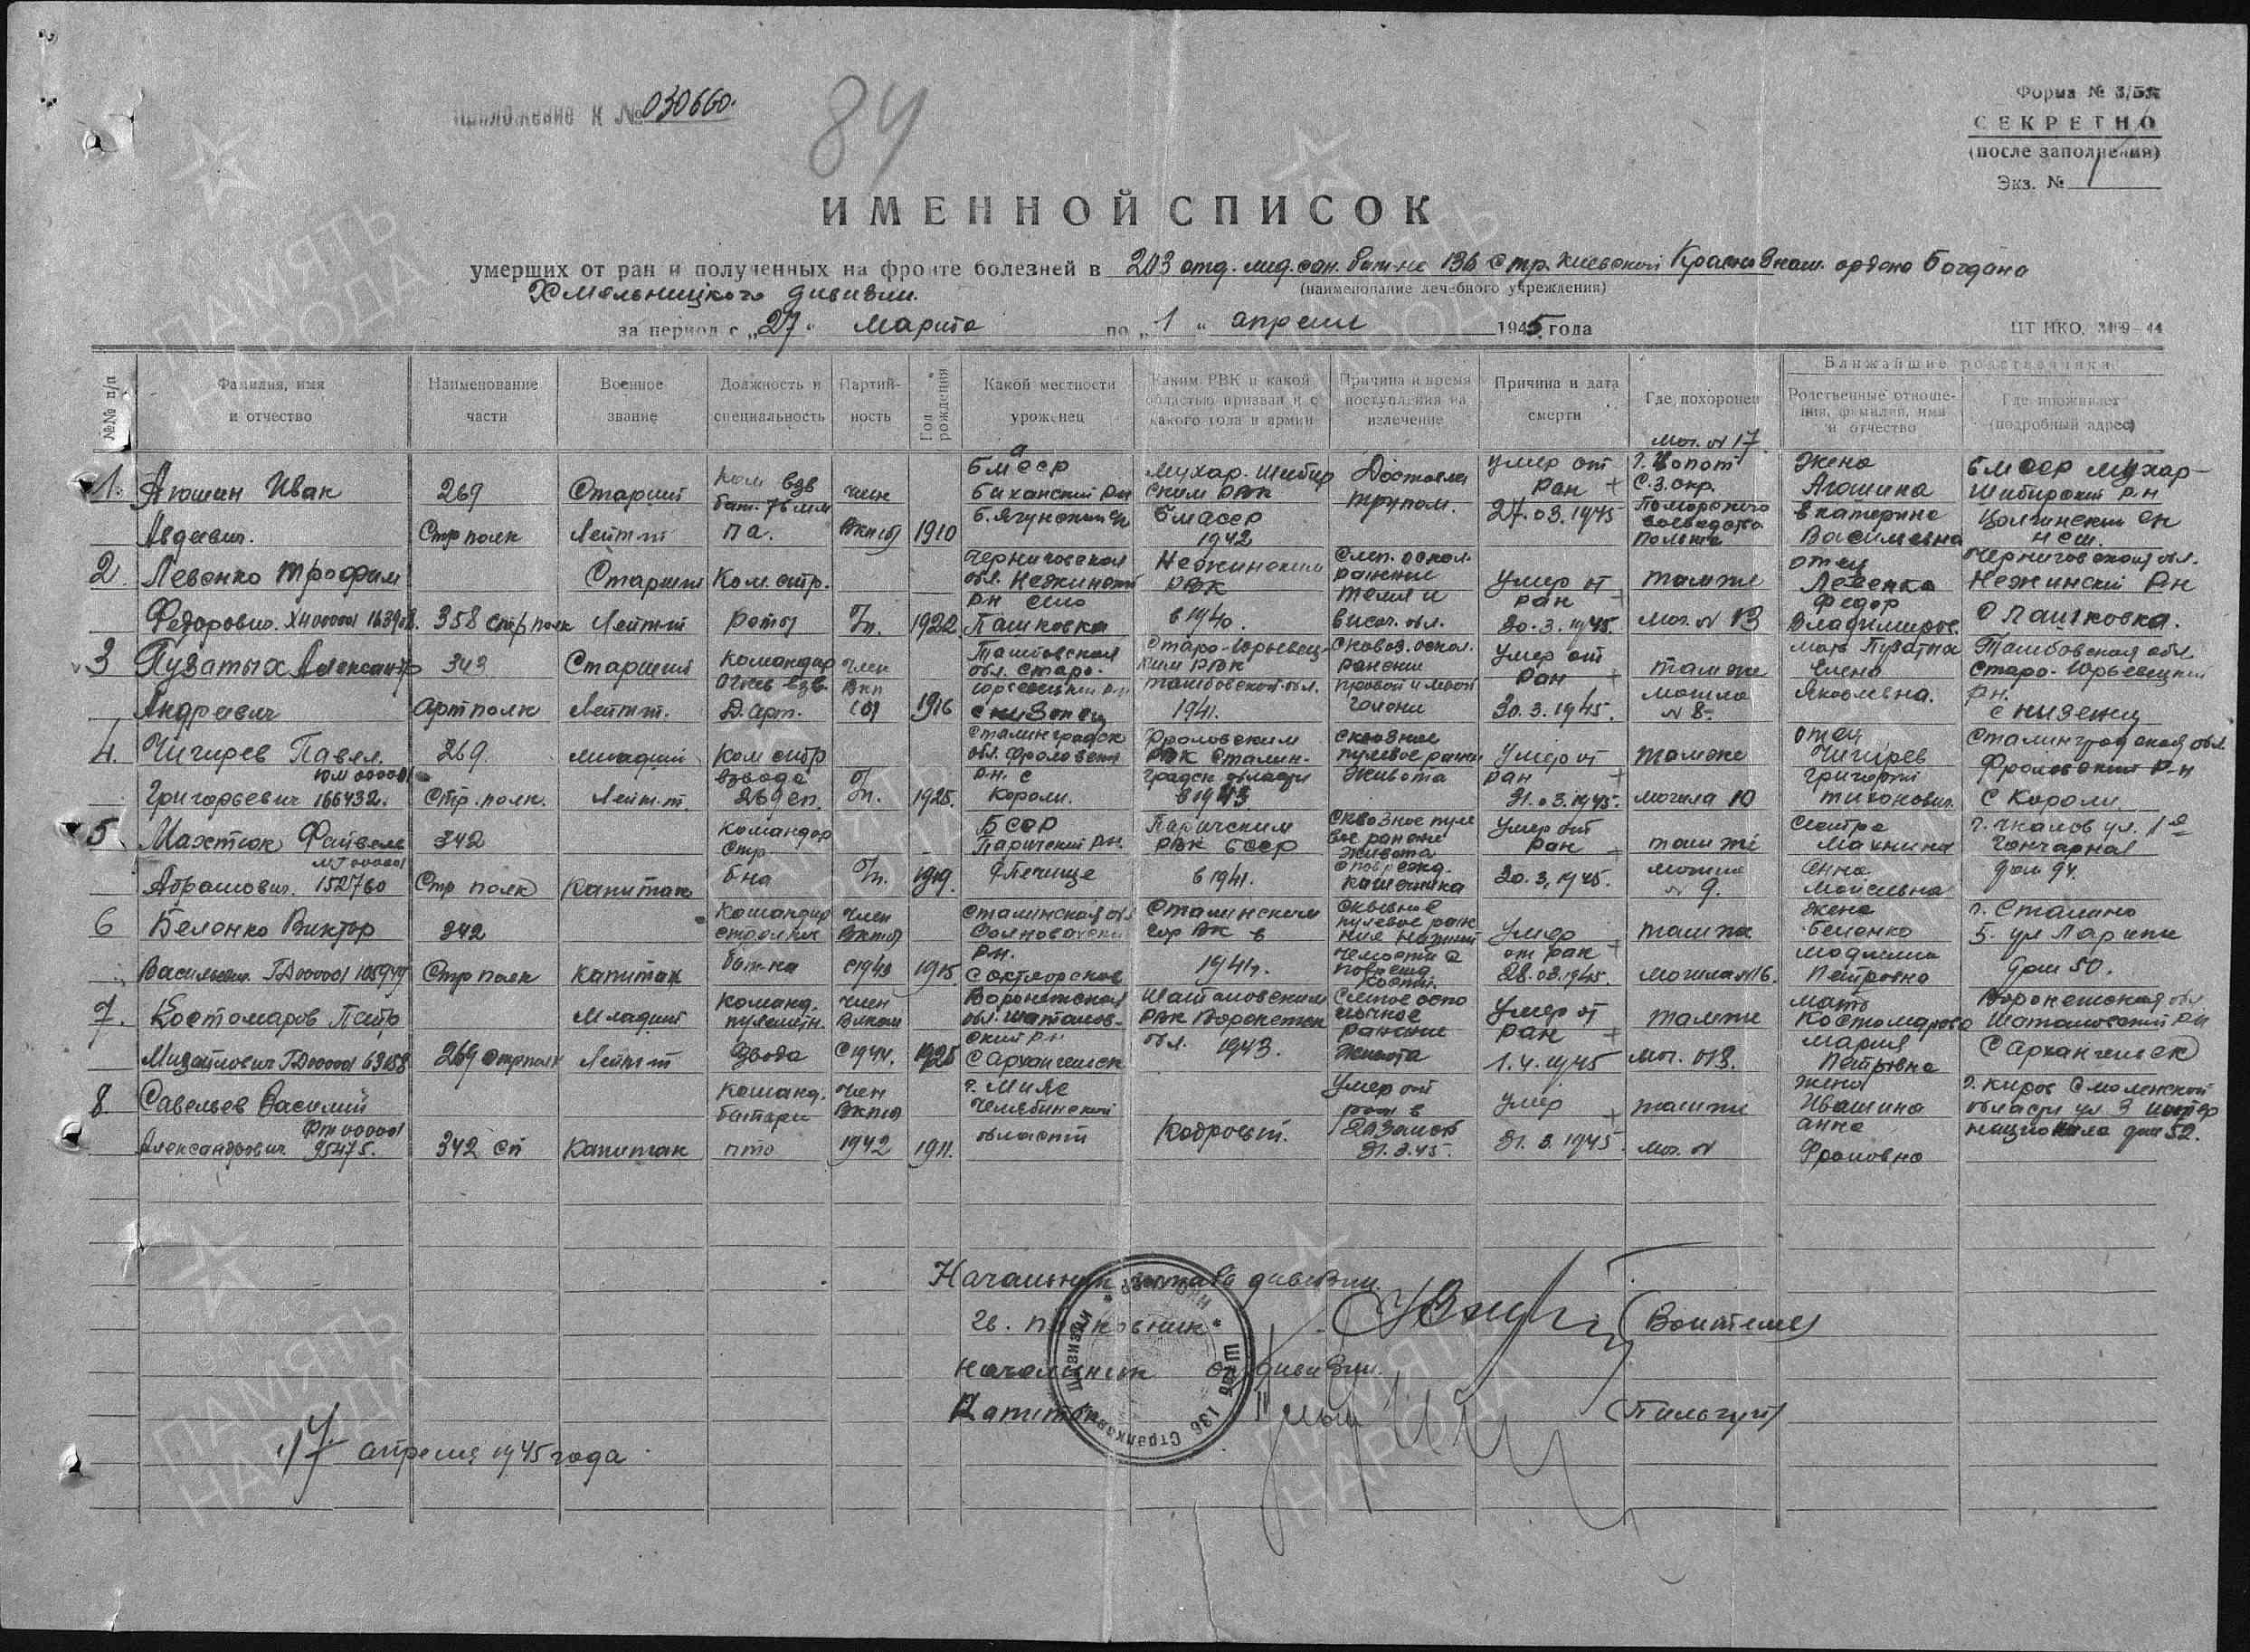 Приложение к № 030660.
84
Форма № 3/БЛ
СЕКРЕТНО
(после заполнения)
Экз. № 1
ИМЕННОЙ СПИСОК
умерших от ран и полученных на фронте болезней в 203 отд. мед. сан. бат-не 136 стр. Киевской Краснознам. ордена Богдана
Хмельницкого дивизии.
(наименование лечебного учреждения)
за период с „27“ марта по „1“ апреля 1945 года
ЦТ НКО.
№№ п/п
Фамилия, имя и отчество
Наименование части
Военное звание
Должность и специальность
Партий-ность
Год рождения
Какой местности уроженец
Каким РВК и какой областью призван и с какого года в армии
Причина и время поступления на излечение
Причина и дата смерти
Где похоронен
Ближайшие родственники
Родственные отноше-ния, фамилия, имя и отчество
Где проживает (подробный адрес)
1. Агюшин Иван Авдеевич.
269 Стр полк
Старший Лейт-т
Ком взв бат. 76 мм па.
член ВКП(б)
1910
БМАССР
Мухор. Шибир ским РВК БМАССР 1942
Доставлен трупом.
умер от ран 27.03.1945
Мог. № 17 г. Цопот С.З. окр. Поморского воеводство Польша
Жена Агюшина Екатерина Васильевна
БМССР Мухор-Шибирский р-н
2. Левенко Трофим Федорович.
358 стр полк
Старший Лейт-т
Ком. стр. роты
б/п.
1922
Черниговская обл. Нежинский р-н село Пашковка
Нежинским РВК в 1940.
Слеп. оскол. ранение
умер от ран 30.3.1945.
там же мог. № 13
отец Левенко Федор Владимиров.
Черниговская обл. Нежинский р-н с Пашковка.
3 Пузатых Александр Андреевич
343 Артполк
Старший Лейт-т.
Командир огнев взв. Д. арт.
член ВКП (б)
1916
Тамбовская обл. Старо-Юрьевецкий р-н
Старо-Юрьевец-ким РВК Тамбовской обл. 1941.
Сквозн. оскол. ранение правой и левой голени
Умер от ран 30.3.1945.
там же могила № 8.
мать Пузатых Елена Яковлевна.
Тамбовская обл Старо-Юрьевецкий р-н.
4. Чигирев Павел Григорьевич ЮМ 00001 166432.
269. Стр. полк.
младший Лейт-т.
Ком стр взвода 269 сп.
б/п.
1925.
Сталинградск обл. Фроловский р-н. с Короли.
Фроловским РВК Сталин-градск области в 1943
сквозное пулевое ранен живота
Умер от ран 31.03.1945.
там же могила 10
отец Чигирев Григорий Тихонович.
Сталинградская обл. Фроловский р-н с Короли
5. Махтюк Файвель Абрамович. МТ 00001 152760
342 Стр полк
капитан
Командир стр. б-на
б/п.
1919.
БССР Паричский р-н
Паричским РВК БССР в 1941.
Сквозное пуле вое ранение живота с поврежд. кишечника
Умер от ран 30.3.1945.
там же могила № 9.
Сестра Махнина Анна Моисеевна
г. Чкалов ул. 1-я Гончарная дом 94.
6 Беленко Виктор Васильевич. ГД 00001 105949
342 Стр полк
капитан
Командир стрелков бат-на
член ВКП(б) с 1943
1915.
Сталинская обл р-н. с Октяорское
Сталинским гор ВК в 1941 г.
Умер от ран 28.03.1945.
там же могила № 16.
Жена Беленко Петровна
г. Сталино 5. ул Ларина дом 50.
7. Костомаров Петр Михайлович ГД 00001 63158
269 стр полк
Младший Лейт-т
Команд. пулеметн. взвода
член с 1944.
1925
Воронежская обл. Шаталов-ский р-н с Архангелск
Шаталовским РВК Воронежск обл. 1943.
Слепое оско лочное ранение живота
Умер от ран 1.4.1945
там же
мать Костомарова Мария Петровна
Воронежская обл Шаталовский р-н с Архангелск
8. Савельев Василий Александрович ФТ 00001 95475.
342 сп
капитан
Команд. батареи ПТО
член ВКП(б) 1942
1911.
г. Мияс Челябинской области
Кадровый.
Умер от ран в 203 мсб 31.3.45.
умер 31.3.1945
там же мог. №
жена Ивашина Анна Фроловна
г. Киров Смоленской области ул 3 интер национала дом 52.
Начальник штаба дивизии
Гв. полковник (Воителев)
Начальник дивизии.
Капитан (Пильгун)
17 апреля 1945 года
136 Стрелковая дивизия
ПАМЯТЬ НАРОДА